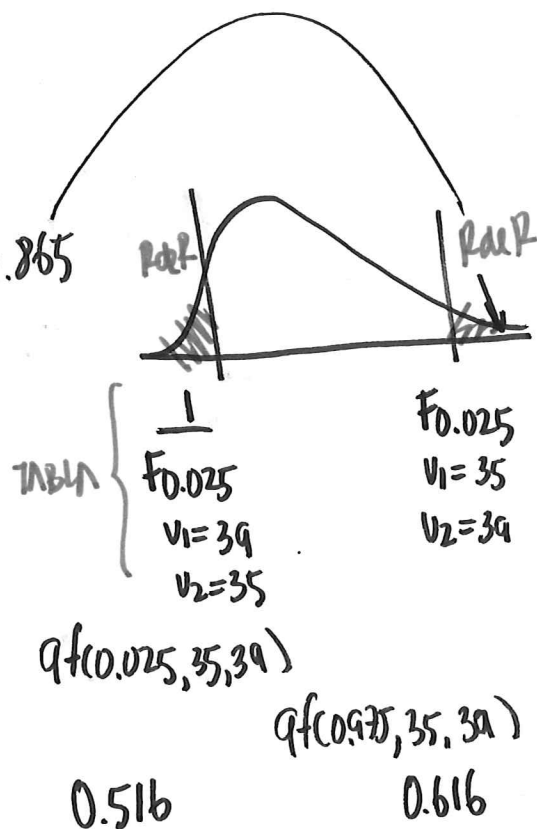 .865
RdeR
RdeR
TABLA
1
F0.025
V1=39
V2=35
F0.025
V1=35
V2=39
qf(0.025,35,39)
qf(0.975,35,39)
0.516
0.616